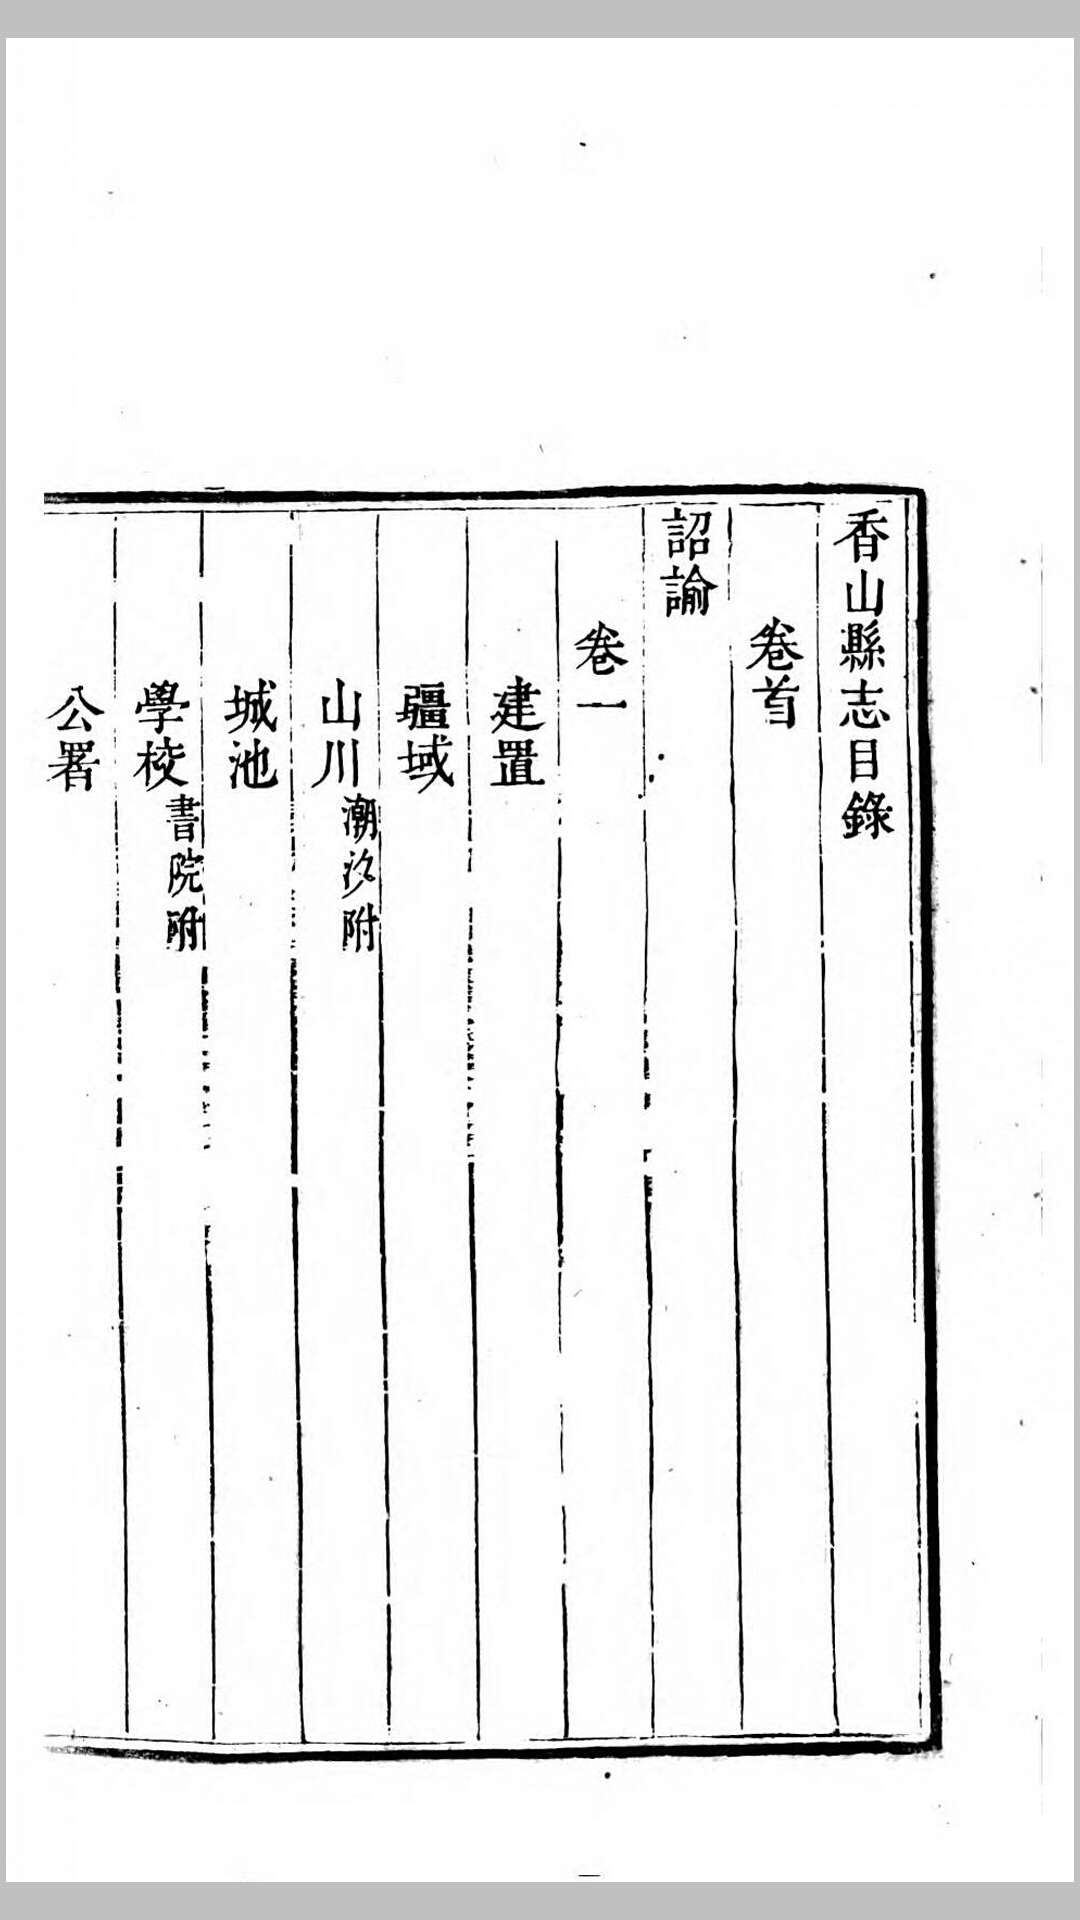 香山縣志目錄
卷首
詔諭
卷一
建置
疆域
山川潮汐附
城池
學校書院附
公署